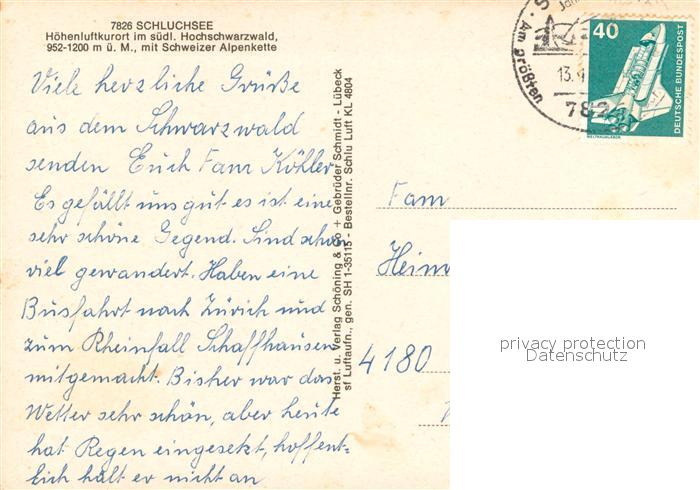 7826 SCHLUCHSEE
Höhenluftkurort im südl. Hochschwarzwald,
952-1200 m ü. M., mit Schweizer Alpenkette
Viele herzliche Grüße
aus dem Schwarzwald
senden Euch Fam Köhler.
Es gefällt uns gut es ist eine
sehr schöne Gegend. Sind schon
viel gewandert. Haben eine
Busfahrt nach Zürich und
zum Rheinfall Schaffhausen
mitgemacht. Bisher war das
Wetter sehr schön, aber heute
hat Regen eingesetzt, hoffent-
lich hält er nicht an
Herst. u. Verlag Schöning & Co + Gebrüder Schmidt - Lübeck
sf Luftaufn., gen. SH 1-35115 - Bestellnr. Schlu Luft KL 4804
Am größten
13.
782
40
DEUTSCHE BUNDESPOST
WELTRAUMLABOR
Fam
Heinr
4180
privacy protection
Datenschutz